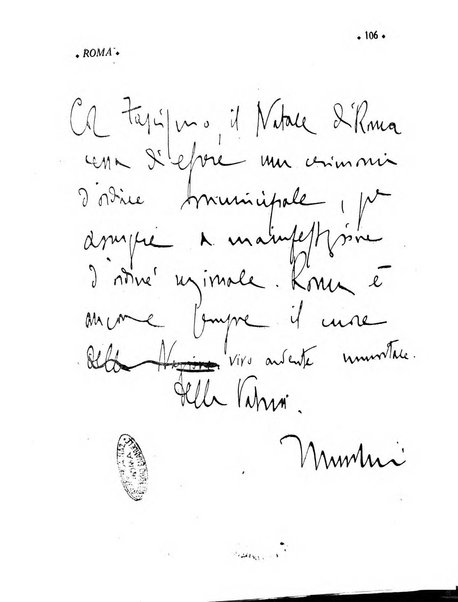 • 106 •
• ROMA •
Col Fascismo, il Natale di Roma
cessa di essere una cerimonia
d'ordine municipale, per
assurgere a manifestazione
d'ordine nazionale. Roma è
ancora e sempre il cuore
della Nazione vivo ardente immortale.
della Nazione.
Mussolini